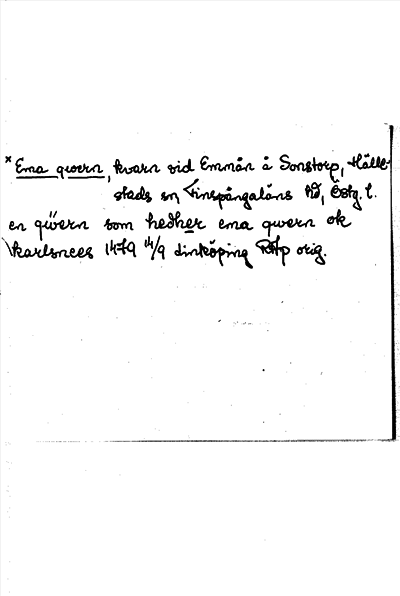 *Ema qwern, kvarn vid Emmån å Sonstorp, Hälle-
stads sn, Finspångaläns hd, Östg. l.
en qwern som hedher ema qwern ok
karlsnees 1479 14/9 Linköping RAp orig.